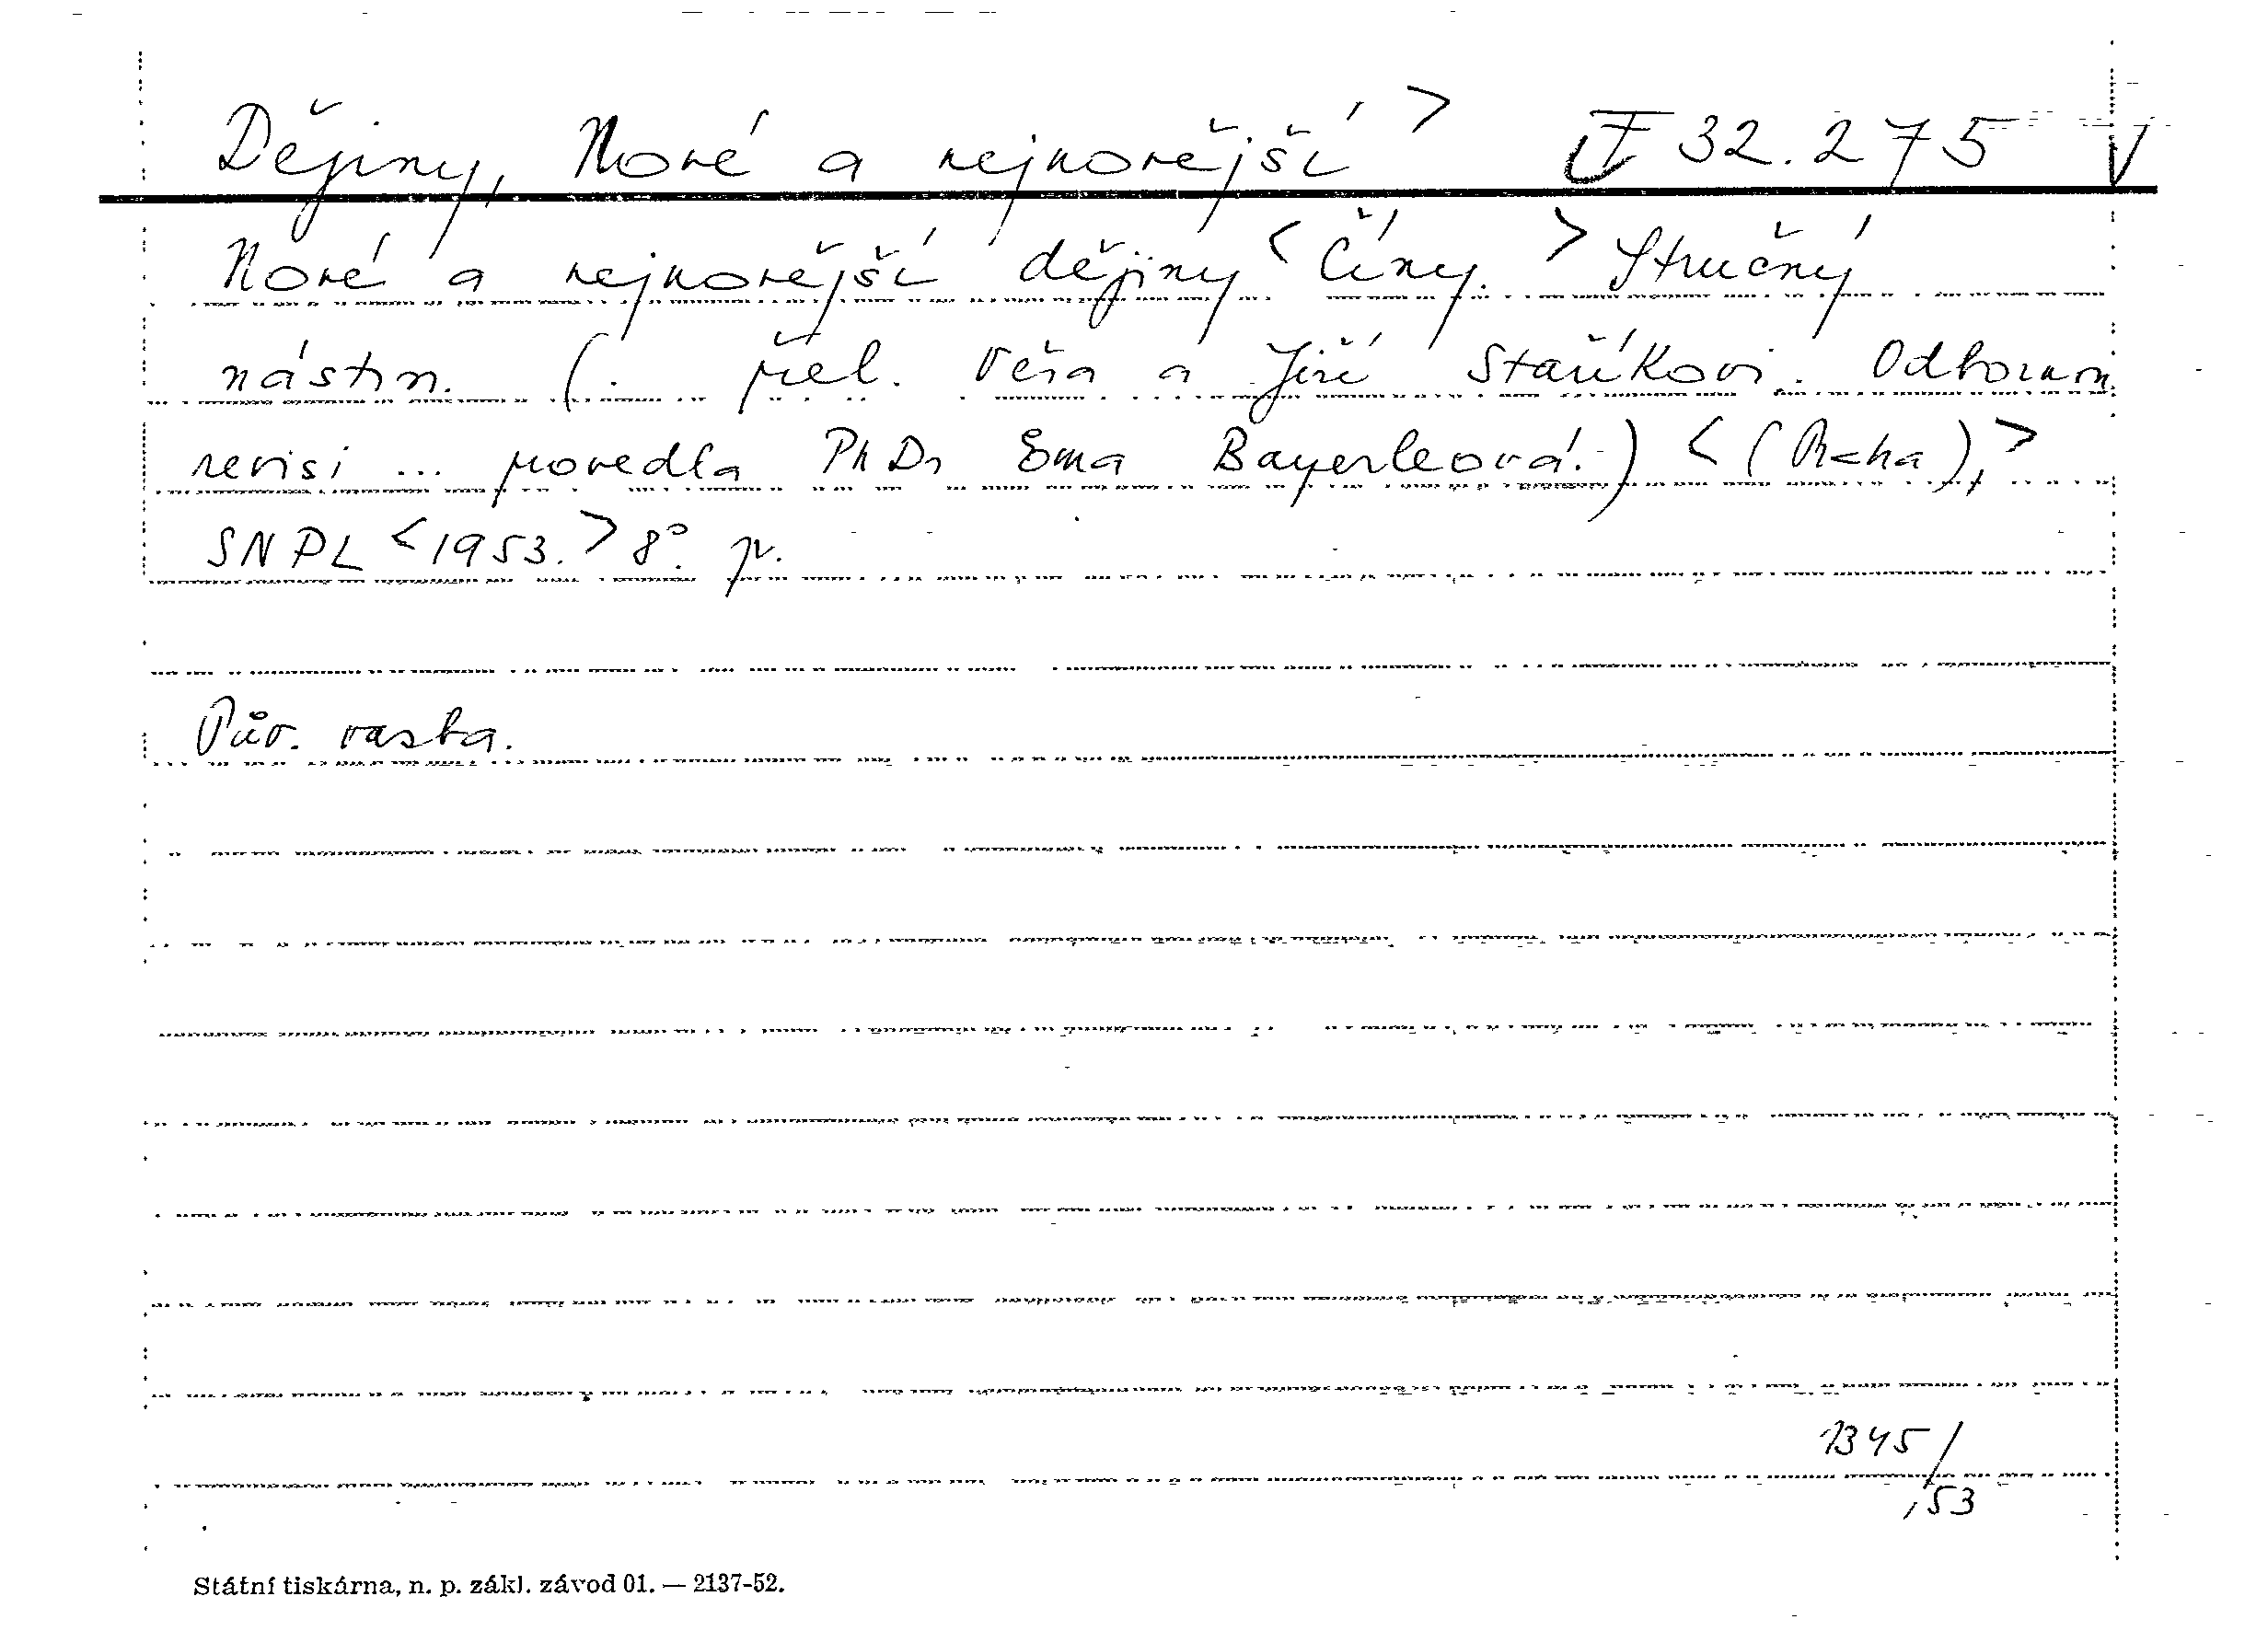 Dějiny, Nové a nejnovější > F 32.275
Nové a nejnovější dějiny < Číny. > Stručný
nástin. (. přel. Věra a Jiří Staříkovi. Odbornou
revisi ... provedla PhDr Ema Bayerleová.) < (Praha), >
SNPL < 1953. > 8°. pv.
Pův. vazba.
1345/
,53
Státní tiskárna, n. p. zákl. závod 01. — 2137-52.